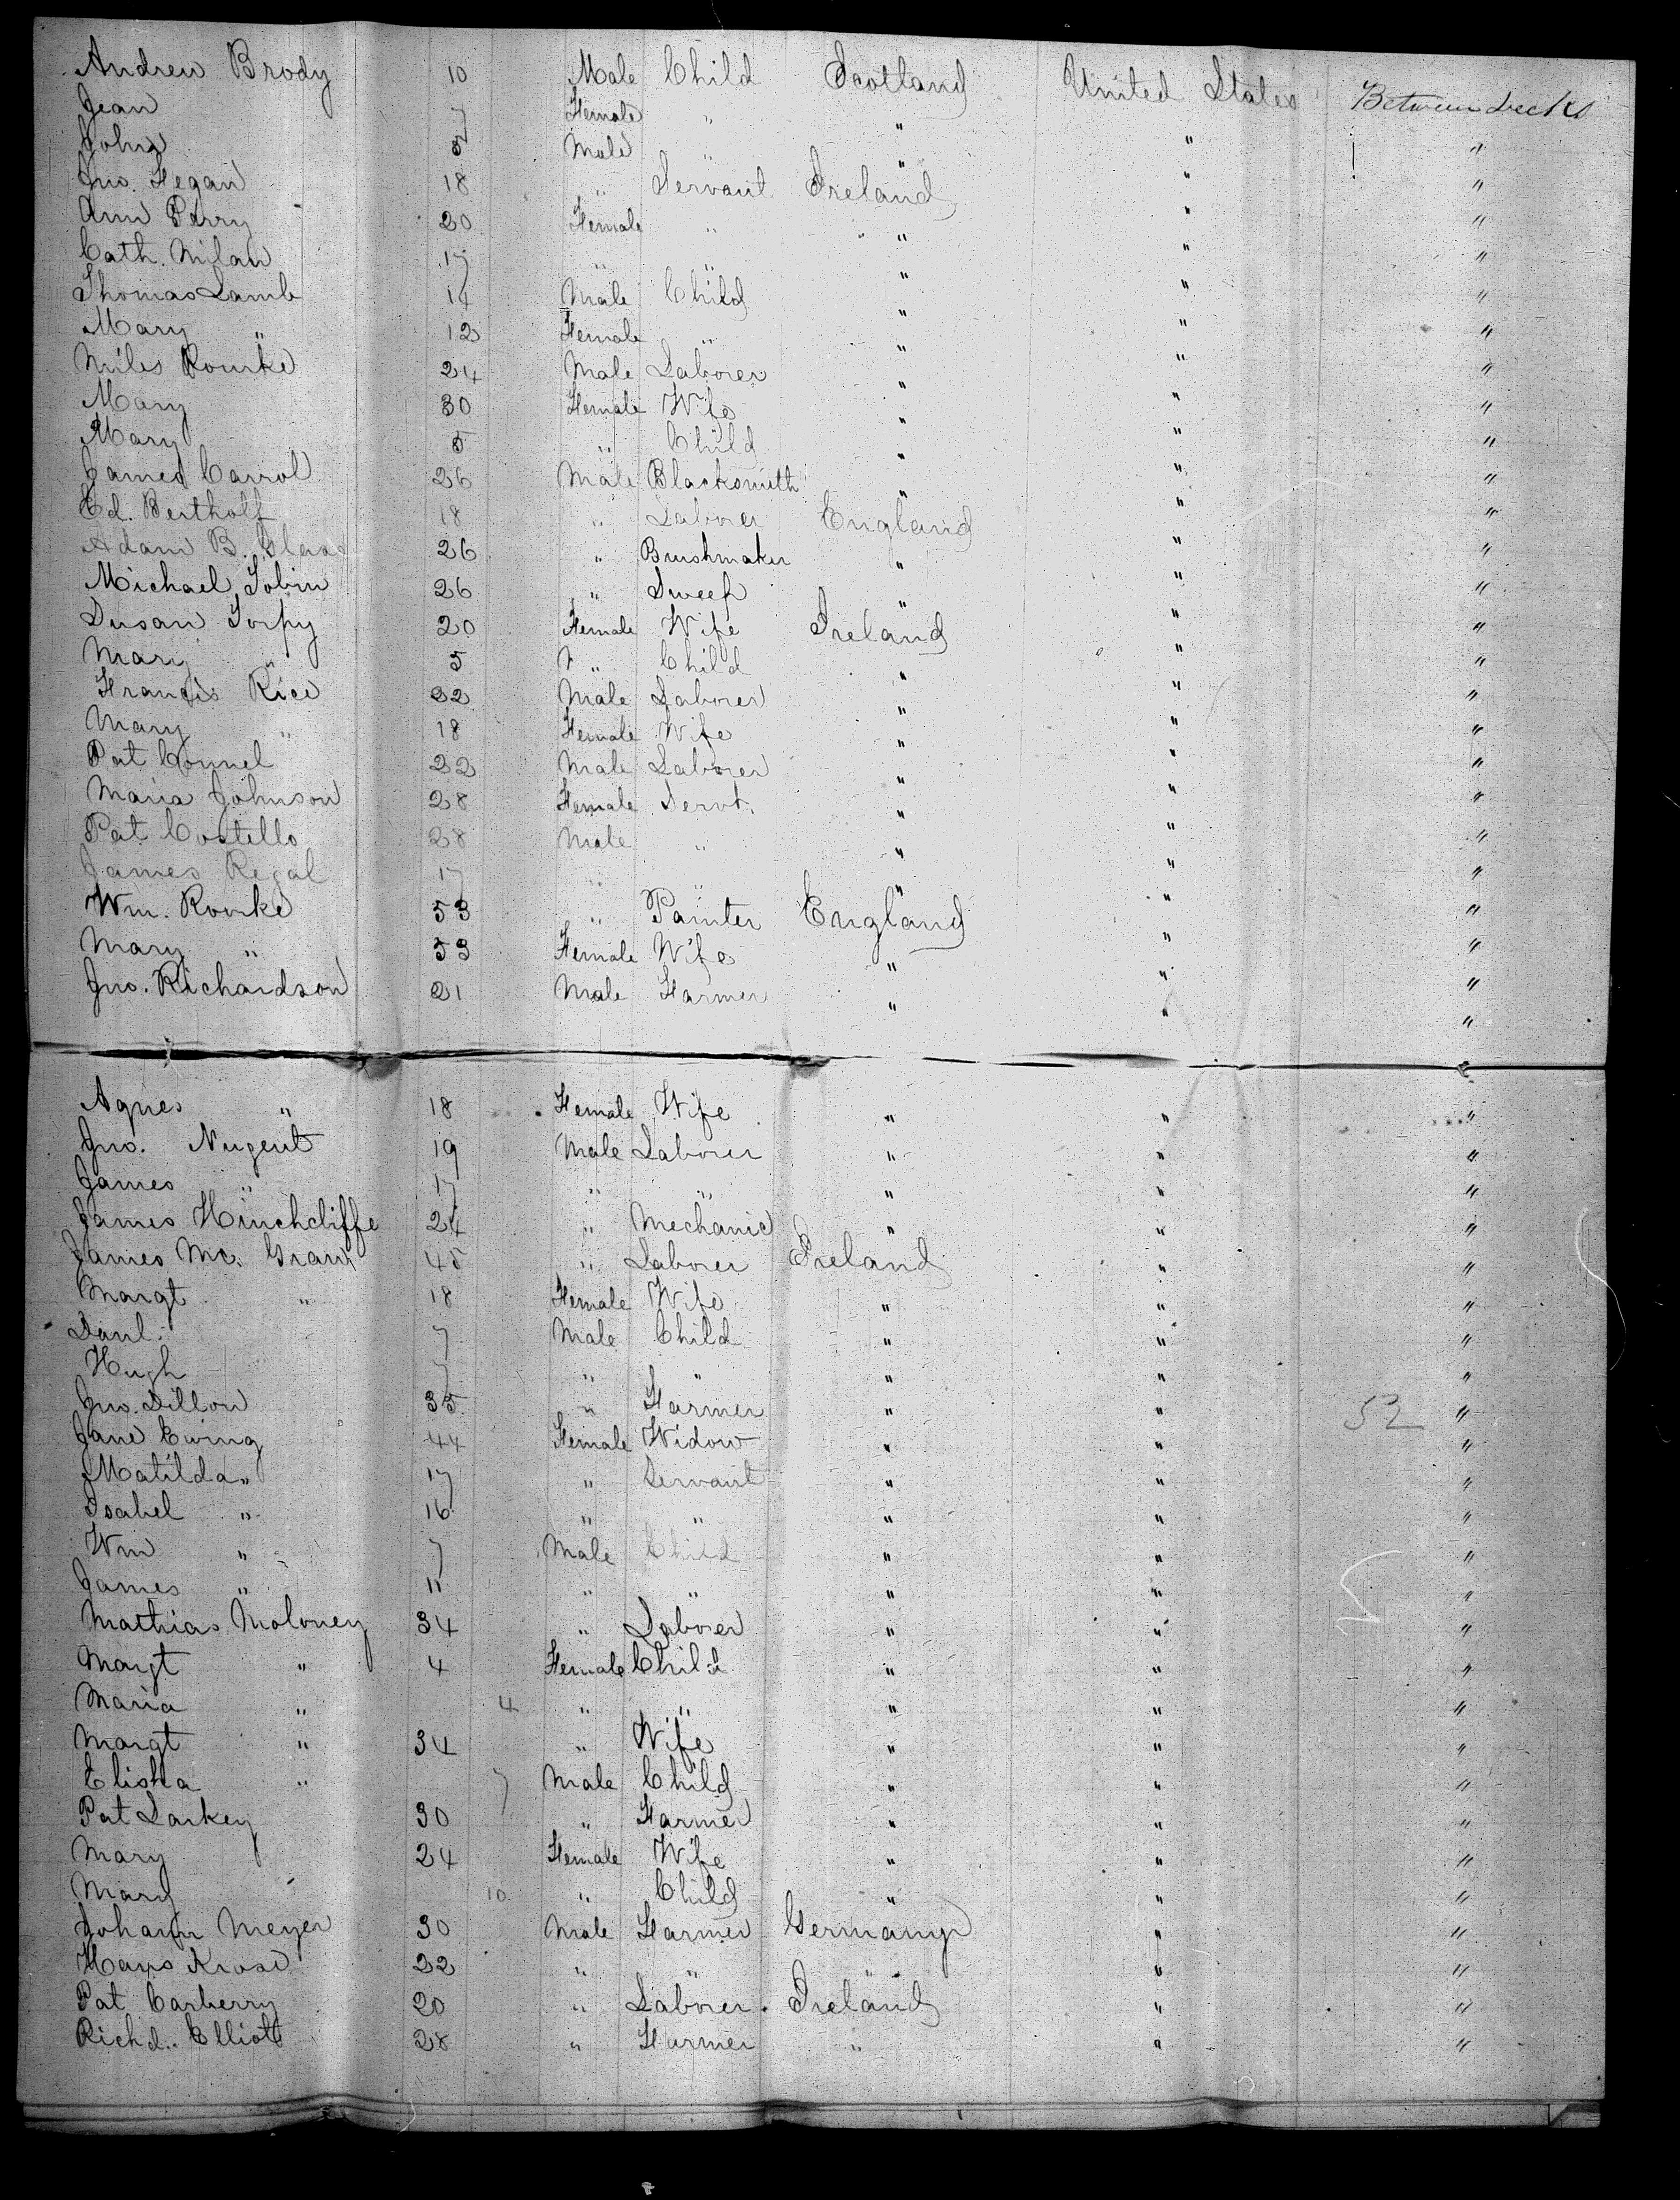 Andrew Brody 10 Male Child Scotland United States Between decks
Jean 7 Female " " " "
John 5 Male " " " "
Jno. Hegan 18 " Servant Ireland " "
Ann Perry 20 Female " " " "
Cath. Milan 17 " " " " "
Thomas Lamb 14 Male Child " " "
Mary " 12 Female " " " "
Miles Rourke 24 Male Laborer " " "
Mary 30 Female Wife " " "
Mary 5 " Child " " "
James Carrol 26 Male Blacksmith " " "
Ed. Bertholf 18 " Laborer England " "
Adam B. 26 " Brushmaker " " "
Michael Tobin 26 " Sweep " " "
Susan Torpy 20 Female Wife Ireland " "
Mary " 5 " Child " " "
Francis Rice 32 Male Laborer " " "
Mary " 18 Female Wife " " "
Pat Connel 22 Male Laborer " " "
Maria Johnson 28 Female Servt. " " "
Pat Costello 28 Male " " " "
James Regal 17 " " " " "
Wm. Rourke 53 " Painter England " "
Mary " 53 Female Wife " " "
Jno. Richardson 21 Male Farmer " " "
Agnes " 18 Female Wife " " "
Jno. Nugent 19 Male Laborer " " "
James " 17 " " " " "
James Hinchcliffe 24 " Mechanic " " "
James Mc. Graw 45 " Laborer Ireland " "
Margt " 18 Female Wife " " "
Danl. 7 Male Child " " "
Hugh 7 " " " " "
Jno. Dillon 35 " Farmer " " 52 "
Jane Ewing 44 Female Widow " " "
Matilda " 17 " Servant " " "
Isabel " 16 " " " " "
Wm " 7 Male Child " " "
James " 11 " " " " "
Mathias Moloney 34 " Laborer " " "
Margt " 4 Female Child " " "
Maria " 4 " " " " "
Margt " 34 " Wife " " "
Elisha " 7 Male Child " " "
Pat Larkey 30 " Farmer " " "
Mary 24 Female Wife " " "
Mary 10 " Child " " "
Johann Meyer 30 Male Farmer Germany " "
Hans Krose 22 " " " " "
Pat Carberry 20 " Laborer Ireland " "
Richd. Elliott 28 " Farmer " " "